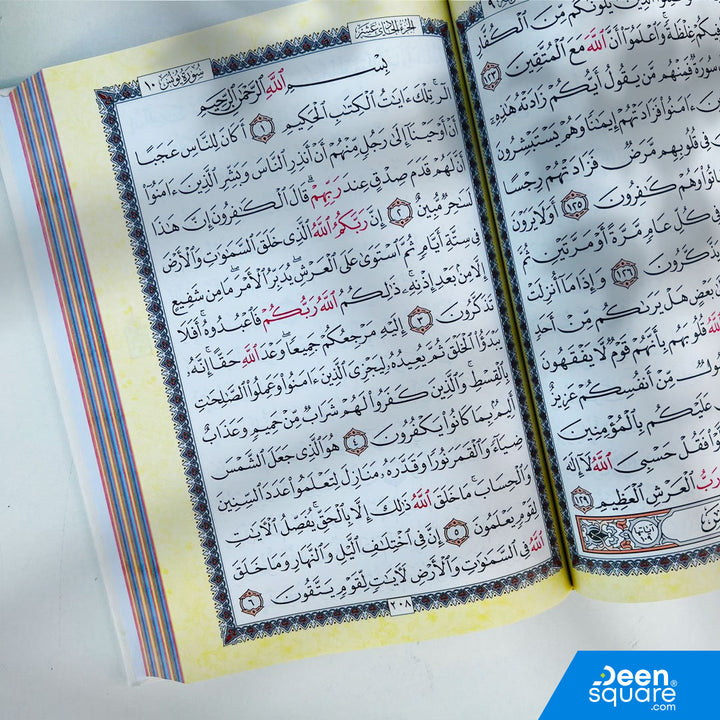 يَلُونَكُم مِّنَ ٱلْكُفَّارِ
فِيكُمْ غِلْظَةً وَٱعْلَمُوٓا۟ أَنَّ ٱللَّهَ مَعَ ٱلْمُتَّقِينَ ١٢٣
سُورَةٌ فَمِنْهُم مَّن يَقُولُ أَيُّكُمْ زَادَتْهُ هَٰذِهِۦٓ
ءَامَنُوا۟ فَزَادَتْهُمْ إِيمَٰنًا وَهُمْ يَسْتَبْشِرُونَ
فِى قُلُوبِهِم مَّرَضٌ فَزَادَتْهُمْ رِجْسًا
وَهُمْ كَٰفِرُونَ ١٢٥ أَوَلَا يَرَوْنَ
كُلِّ عَامٍ مَّرَّةً أَوْ مَرَّتَيْنِ ثُمَّ
يَذَّكَّرُونَ ١٢٦ وَإِذَا مَآ أُنزِلَتْ
بَعْضٍ هَلْ يَرَىٰكُم مِّنْ أَحَدٍ
ٱللَّهُ قُلُوبَهُم بِأَنَّهُمْ قَوْمٌ لَّا يَفْقَهُونَ
مِّنْ أَنفُسِكُمْ عَزِيزٌ
عَلَيْكُم بِٱلْمُؤْمِنِينَ
فَقُلْ حَسْبِىَ ٱللَّهُ لَآ إِلَٰهَ
رَبُّ ٱلْعَرْشِ ٱلْعَظِيمِ ١٢٩
الجزء الحادي عشر
سورة يونس ١٠
بِسْمِ ٱللَّهِ ٱلرَّحْمَٰنِ ٱلرَّحِيمِ
الٓر تِلْكَ ءَايَٰتُ ٱلْكِتَٰبِ ٱلْحَكِيمِ ١ أَكَانَ لِلنَّاسِ عَجَبًا
أَنْ أَوْحَيْنَآ إِلَىٰ رَجُلٍ مِّنْهُمْ أَنْ أَنذِرِ ٱلنَّاسَ وَبَشِّرِ ٱلَّذِينَ ءَامَنُوٓا۟
أَنَّ لَهُمْ قَدَمَ صِدْقٍ عِندَ رَبِّهِمْ قَالَ ٱلْكَٰفِرُونَ إِنَّ هَٰذَا
لَسَٰحِرٌ مُّبِينٌ ٢ إِنَّ رَبَّكُمُ ٱللَّهُ ٱلَّذِى خَلَقَ ٱلسَّمَٰوَٰتِ وَٱلْأَرْضَ
فِى سِتَّةِ أَيَّامٍ ثُمَّ ٱسْتَوَىٰ عَلَى ٱلْعَرْشِ يُدَبِّرُ ٱلْأَمْرَ مَا مِن شَفِيعٍ
إِلَّا مِنۢ بَعْدِ إِذْنِهِۦ ذَٰلِكُمُ ٱللَّهُ رَبُّكُمْ فَٱعْبُدُوهُ أَفَلَا
تَذَكَّرُونَ ٣ إِلَيْهِ مَرْجِعُكُمْ جَمِيعًا وَعْدَ ٱللَّهِ حَقًّا إِنَّهُۥ
يَبْدَؤُا۟ ٱلْخَلْقَ ثُمَّ يُعِيدُهُۥ لِيَجْزِىَ ٱلَّذِينَ ءَامَنُوا۟ وَعَمِلُوا۟ ٱلصَّٰلِحَٰتِ
بِٱلْقِسْطِ وَٱلَّذِينَ كَفَرُوا۟ لَهُمْ شَرَابٌ مِّنْ حَمِيمٍ وَعَذَابٌ
أَلِيمٌۢ بِمَا كَانُوا۟ يَكْفُرُونَ ٤ هُوَ ٱلَّذِى جَعَلَ ٱلشَّمْسَ
ضِيَآءً وَٱلْقَمَرَ نُورًا وَقَدَّرَهُۥ مَنَازِلَ لِتَعْلَمُوا۟ عَدَدَ ٱلسِّنِينَ
وَٱلْحِسَابَ مَا خَلَقَ ٱللَّهُ ذَٰلِكَ إِلَّا بِٱلْحَقِّ يُفَصِّلُ ٱلْءَايَٰتِ
لِقَوْمٍ يَعْلَمُونَ ٥ إِنَّ فِى ٱخْتِلَٰفِ ٱلَّيْلِ وَٱلنَّهَارِ وَمَا خَلَقَ
ٱللَّهُ فِى ٱلسَّمَٰوَٰتِ وَٱلْأَرْضِ لَءَايَٰتٍ لِّقَوْمٍ يَتَّقُونَ ٦
٢٠٨
Deen
square®
.com